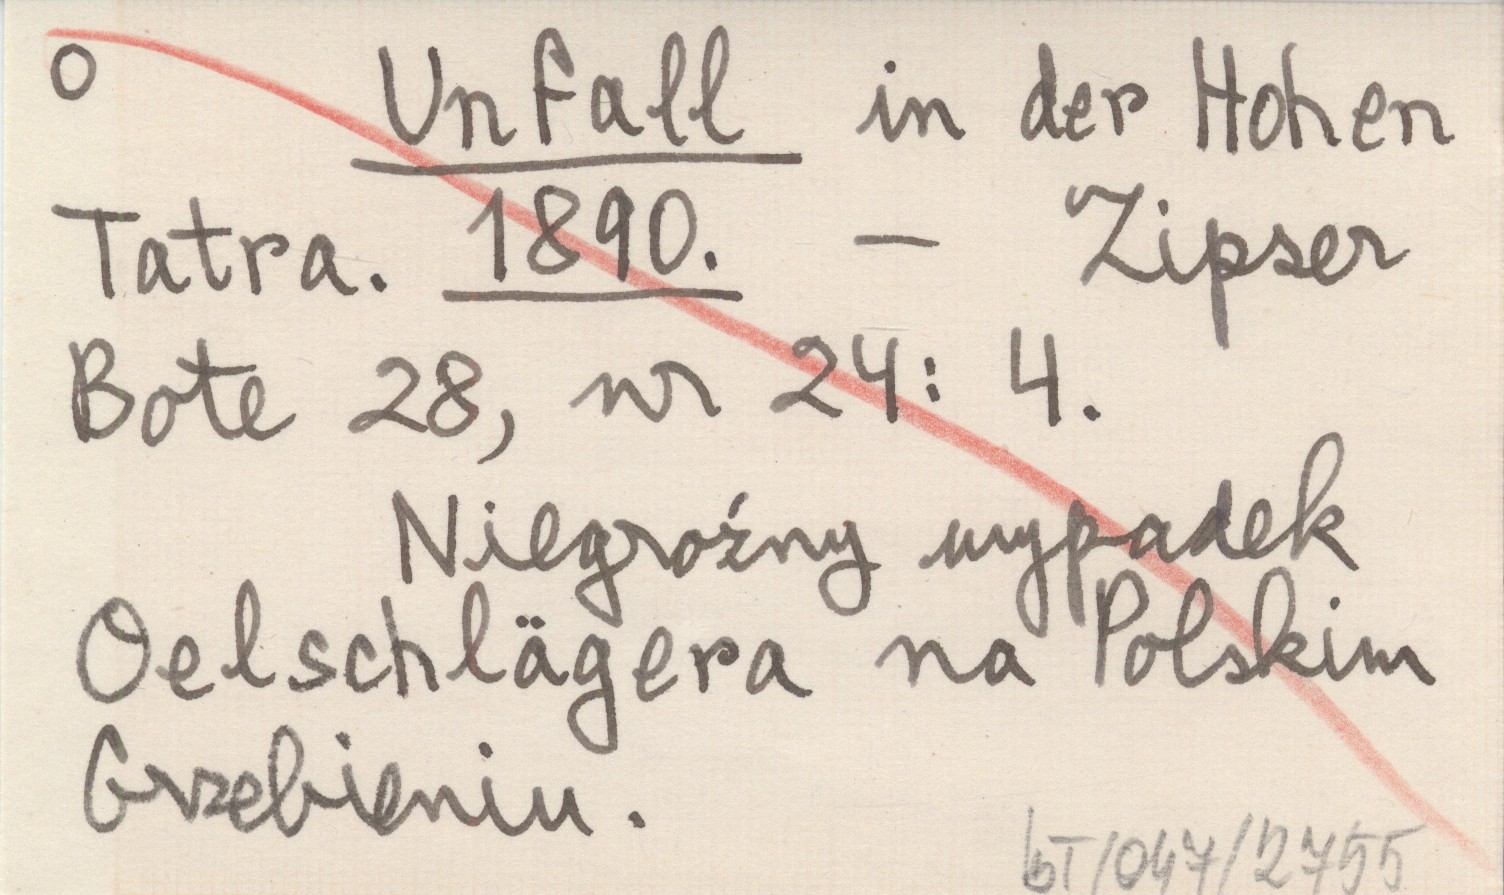 o Unfall in der Hohen
Tatra. 1890. — Zipser
Bote 28, nr 24: 4.
Niegroźny wypadek
Oelschlägera na Polskim
Grzebieniu.
bT/047/2755